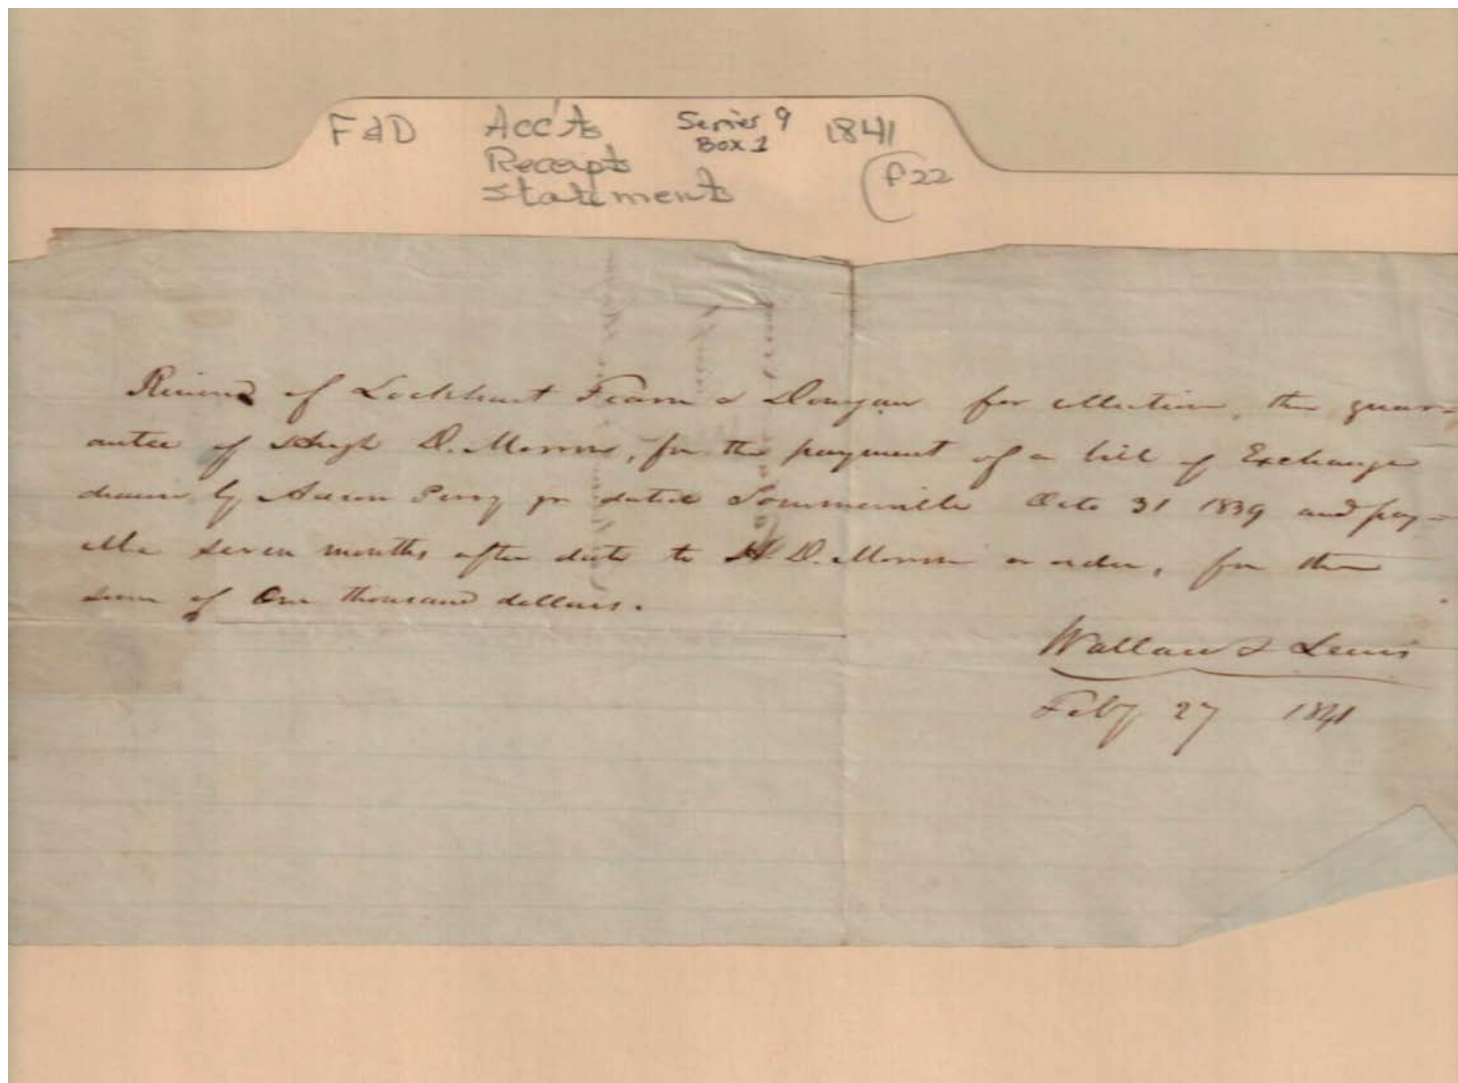 F&D Acc'ts Series 9 1841
Receipts Box 1 F22
Statements
Received of Lockhart Fearn & Donegan for collection, the guar=
antee of Hugh D. Morris, for the payment of a bill of Exchange
drawn by Aaron Perry jr dated Sommerville Octo 31 1839 and pay=
able seven months after date to H. D. Morris or order, for the
sum of One thousand dollars.
Wallace & Lewis
Feby 27 1841